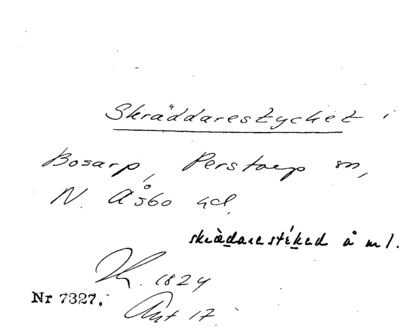 Skräddarestycket i
Bosarp, Perstorp sn,
N. Åsbo hd.
skrädarestíked å m l.
1824
Nr 7327.
Akt 17